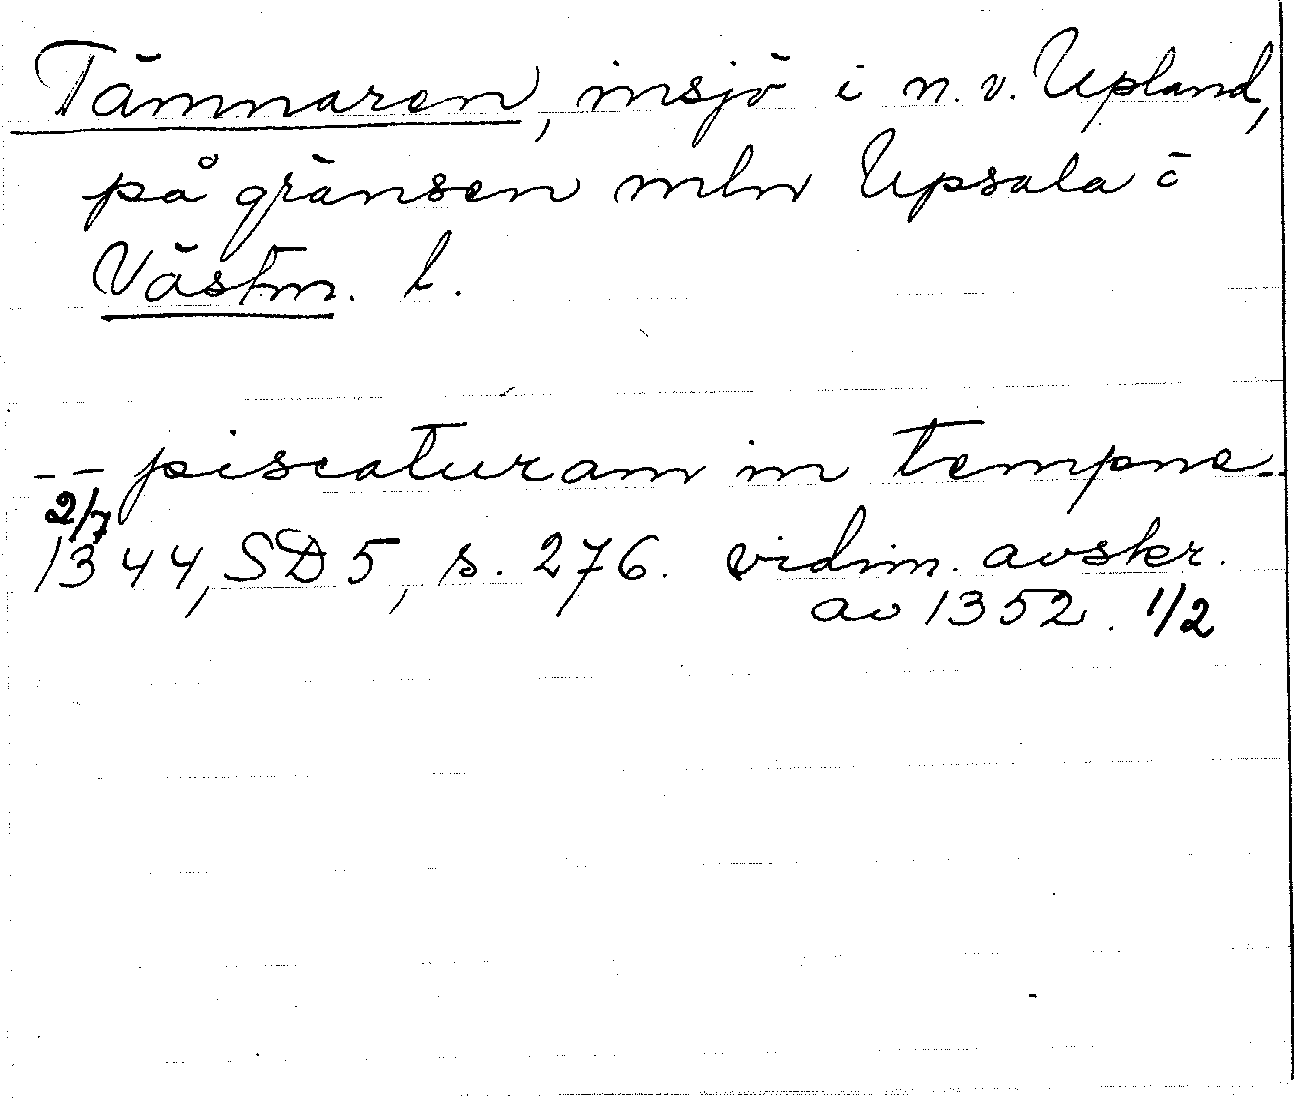 Tämnaren, insjö i n. v. Upland,
på gränsen mln Upsala o
Västm. l.
-- piscaturam in tempne -
2/7
1344, SD 5, s. 276. vidim. avskr.
av 1352. 1/2